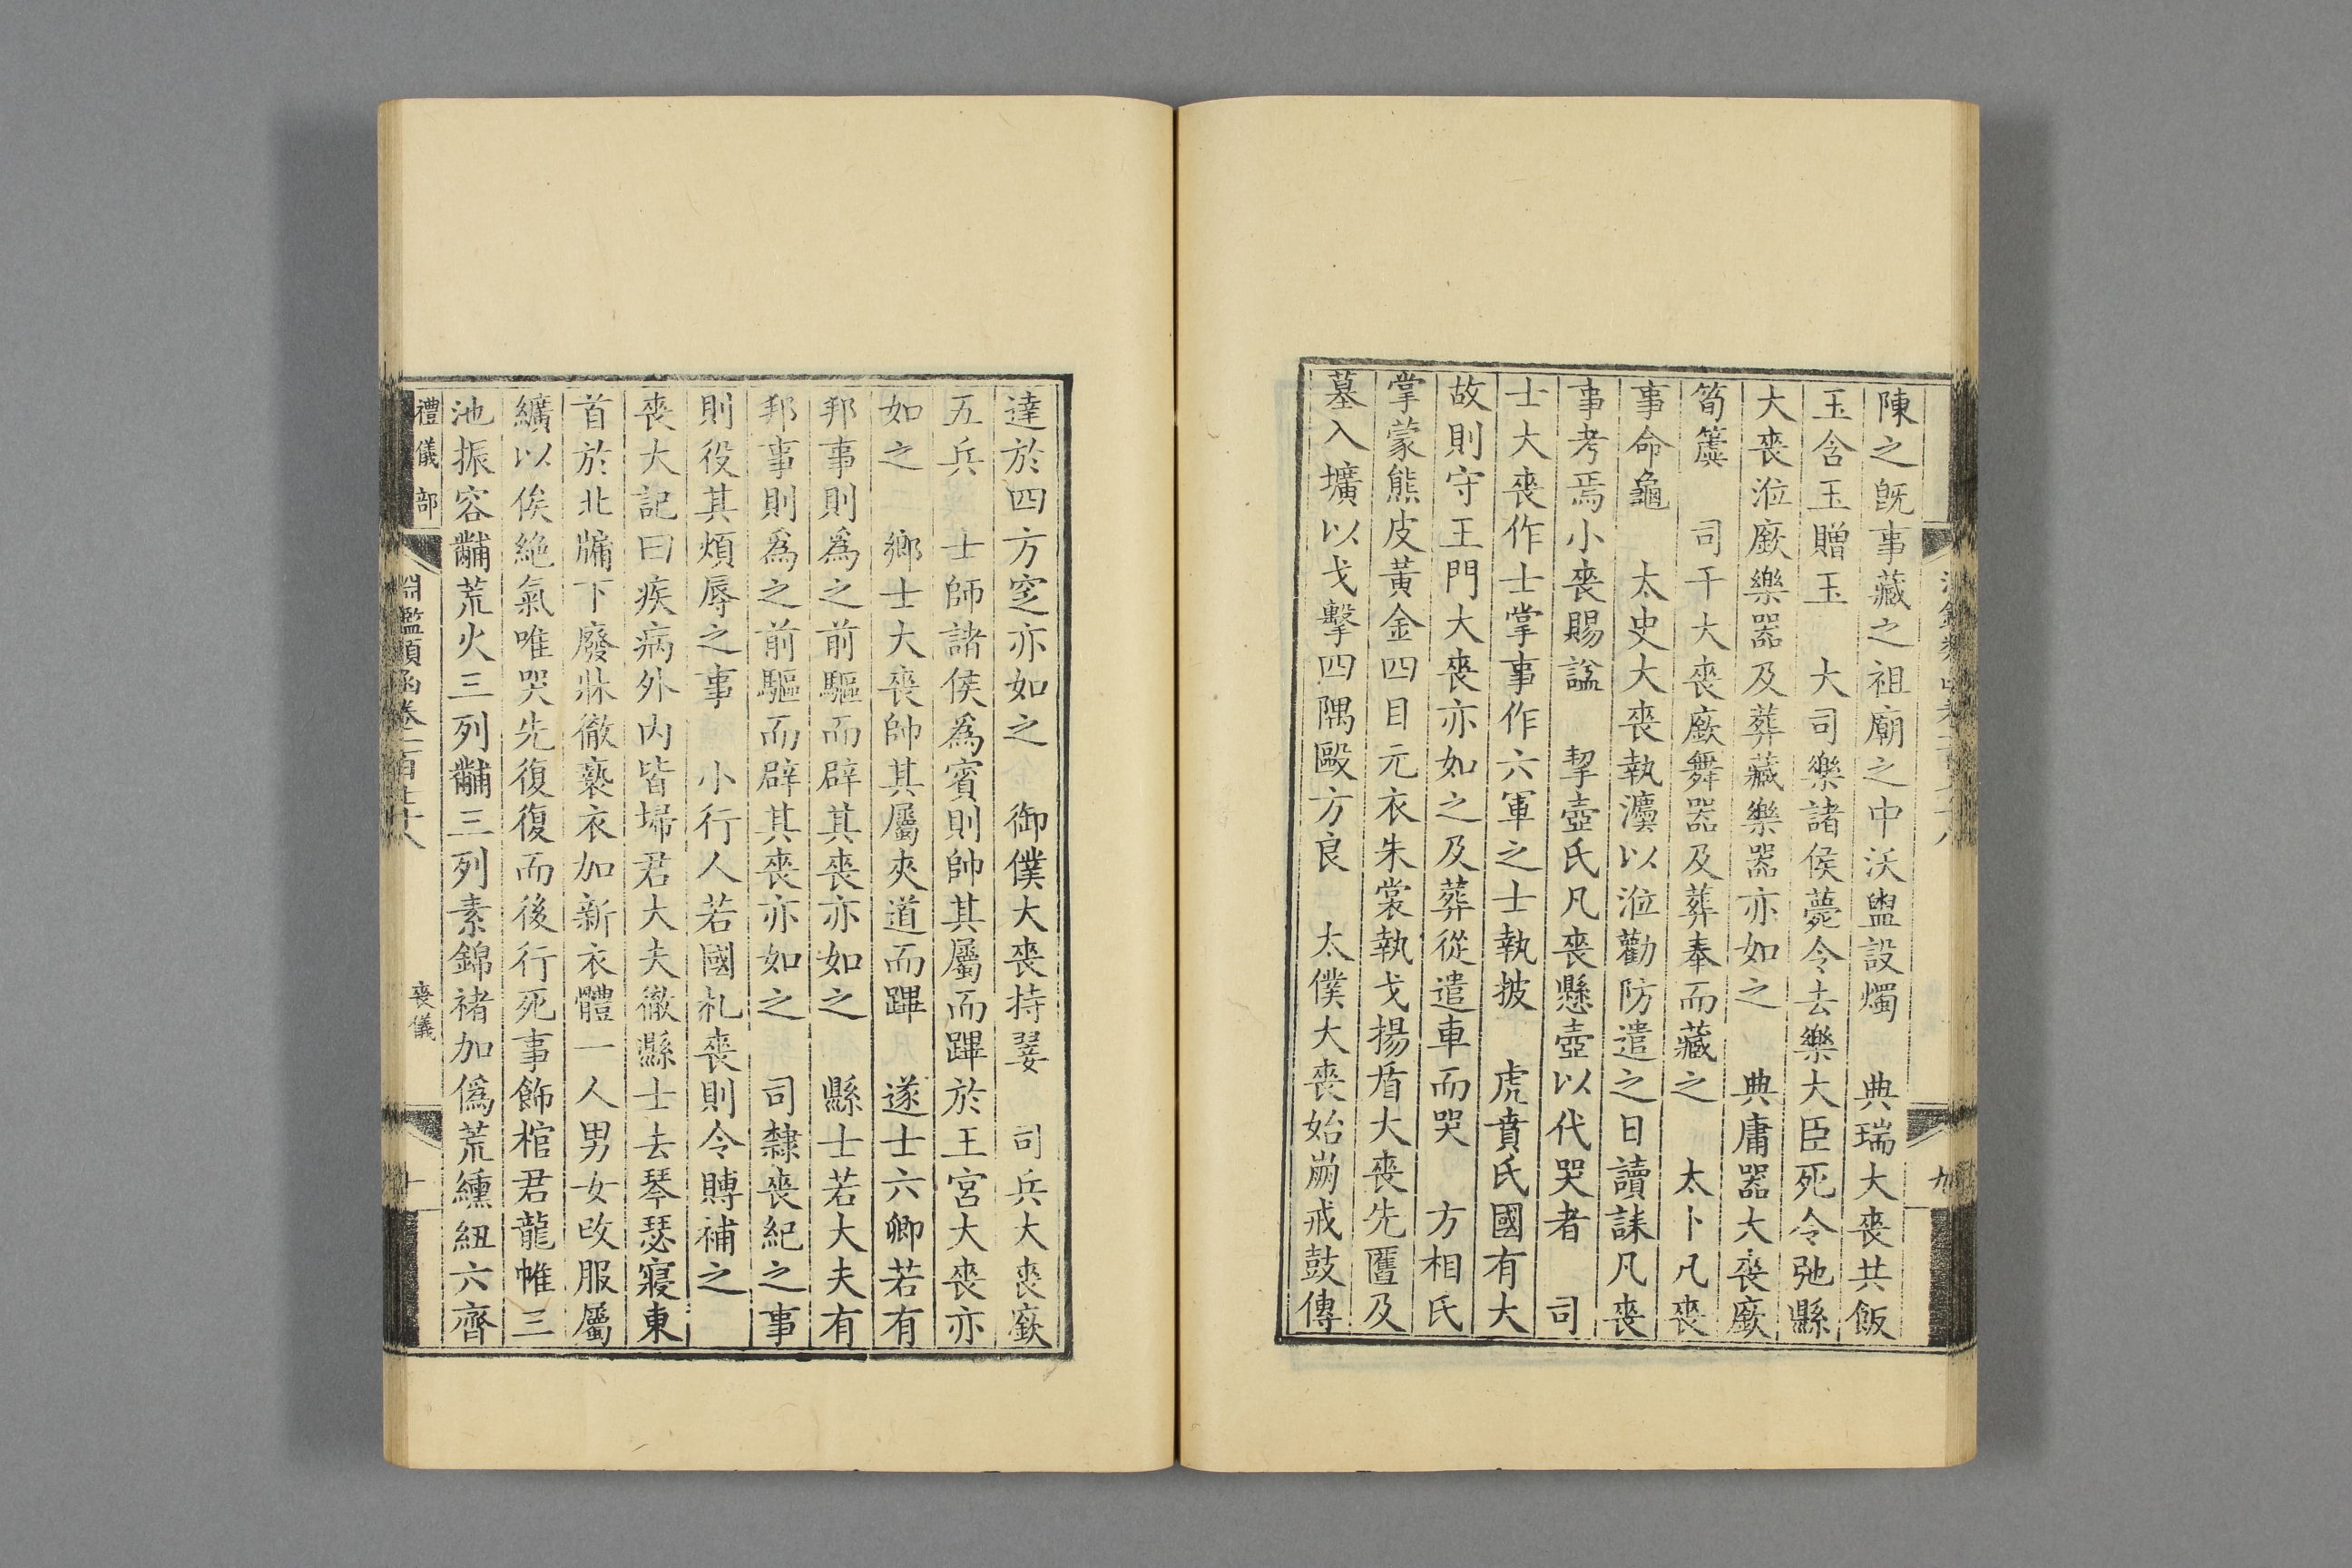 陳之既事藏之祖廟之中沃盥設燭　典瑞大喪共飯
玉含玉贈玉　大司樂諸侯薨令去樂大臣死令弛縣
大喪涖廞樂器及葬藏樂器亦如之　典庸器大喪廞
筍簴　司干大喪廞舞器及葬奉而藏之　太卜凡喪
事命龜　太史大喪執灋以涖勸防遣之日讀誄凡喪
事考焉小喪賜諡　挈壺氏凡喪懸壺以代哭者　司
士大喪作士掌事作六軍之士執披　虎賁氏國有大
故則守王門大喪亦如之及葬從遣車而哭　方相氏
掌蒙熊皮黃金四目元衣朱裳執戈揚盾大喪先匶及
墓入壙以戈擊四隅毆方良　太僕大喪始崩戒鼓傳
九
達於四方窆亦如之　御僕大喪持翣　司兵大喪廞
五兵　士師諸侯爲賓則帥其屬而蹕於王宮大喪亦
如之　鄉士大喪帥其屬夾道而蹕　遂士六卿若有
邦事則爲之前驅而辟其喪亦如之　縣士若大夫有
邦事則爲之前驅而辟其喪亦如之　司隸喪紀之事
則役其煩辱之事　小行人若國札喪則令賻補之
喪大記曰疾病外內皆埽君大夫徹縣士去琴瑟寢東
首於北牖下廢牀徹褻衣加新衣體一人男女改服屬
纊以俟絶氣唯哭先復復而後行死事飾棺君龍帷三
池振容黼荒火三列黼三列素錦褚加僞荒纁紐六齊
禮儀部
淵鑑類函卷一百七十八
喪儀
十